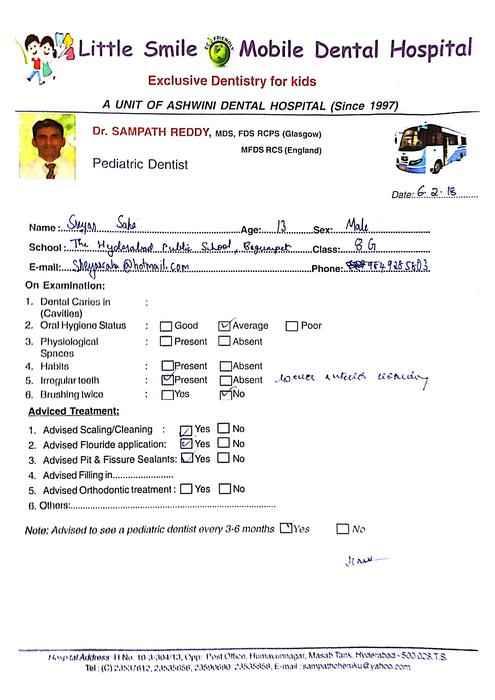 Little Smile Mobile Dental Hospital
ECO FRIENDLY
Exclusive Dentistry for kids
A UNIT OF ASHWINI DENTAL HOSPITAL (Since 1997)
Dr. SAMPATH REDDY, MDS, FDS RCPS (Glasgow)
MFDS RCS (England)
Pediatric Dentist
Date: 6.2.18
Name: Sreyas Saha Age: 13 Sex: Male
School: The Hyderabad Public School, Begumpet Class: 8 G
E-mail: @hotmail.com Phone: 9849285603
On Examination:
1. Dental Caries in :
(Cavities)
2. Oral Hygiene Status : Good Average Poor
3. Physiological : Present Absent
Spaces
4. Habits : Present Absent
5. Irregular teeth : Present Absent lower anterior crowding
6. Brushing twice : Yes No
Adviced Treatment:
1. Advised Scaling/Cleaning : Yes No
2. Advised Flouride application: Yes No
3. Advised Pit & Fissure Sealants: Yes No
4. Advised Filling in....................
5. Advised Orthodontic treatment : Yes No
6. Others:....................
Note: Advised to see a pediatric dentist every 3-6 months Yes No
Hospital Address: H.No. 10-3-304/13, Opp. Post Office, Humayunnagar, Masab Tank, Hyderabad - 500 028.T.S.
Tel : (C) 23537612, 23535656, 23535858, E-mail : sampathcheruku@yahoo.com